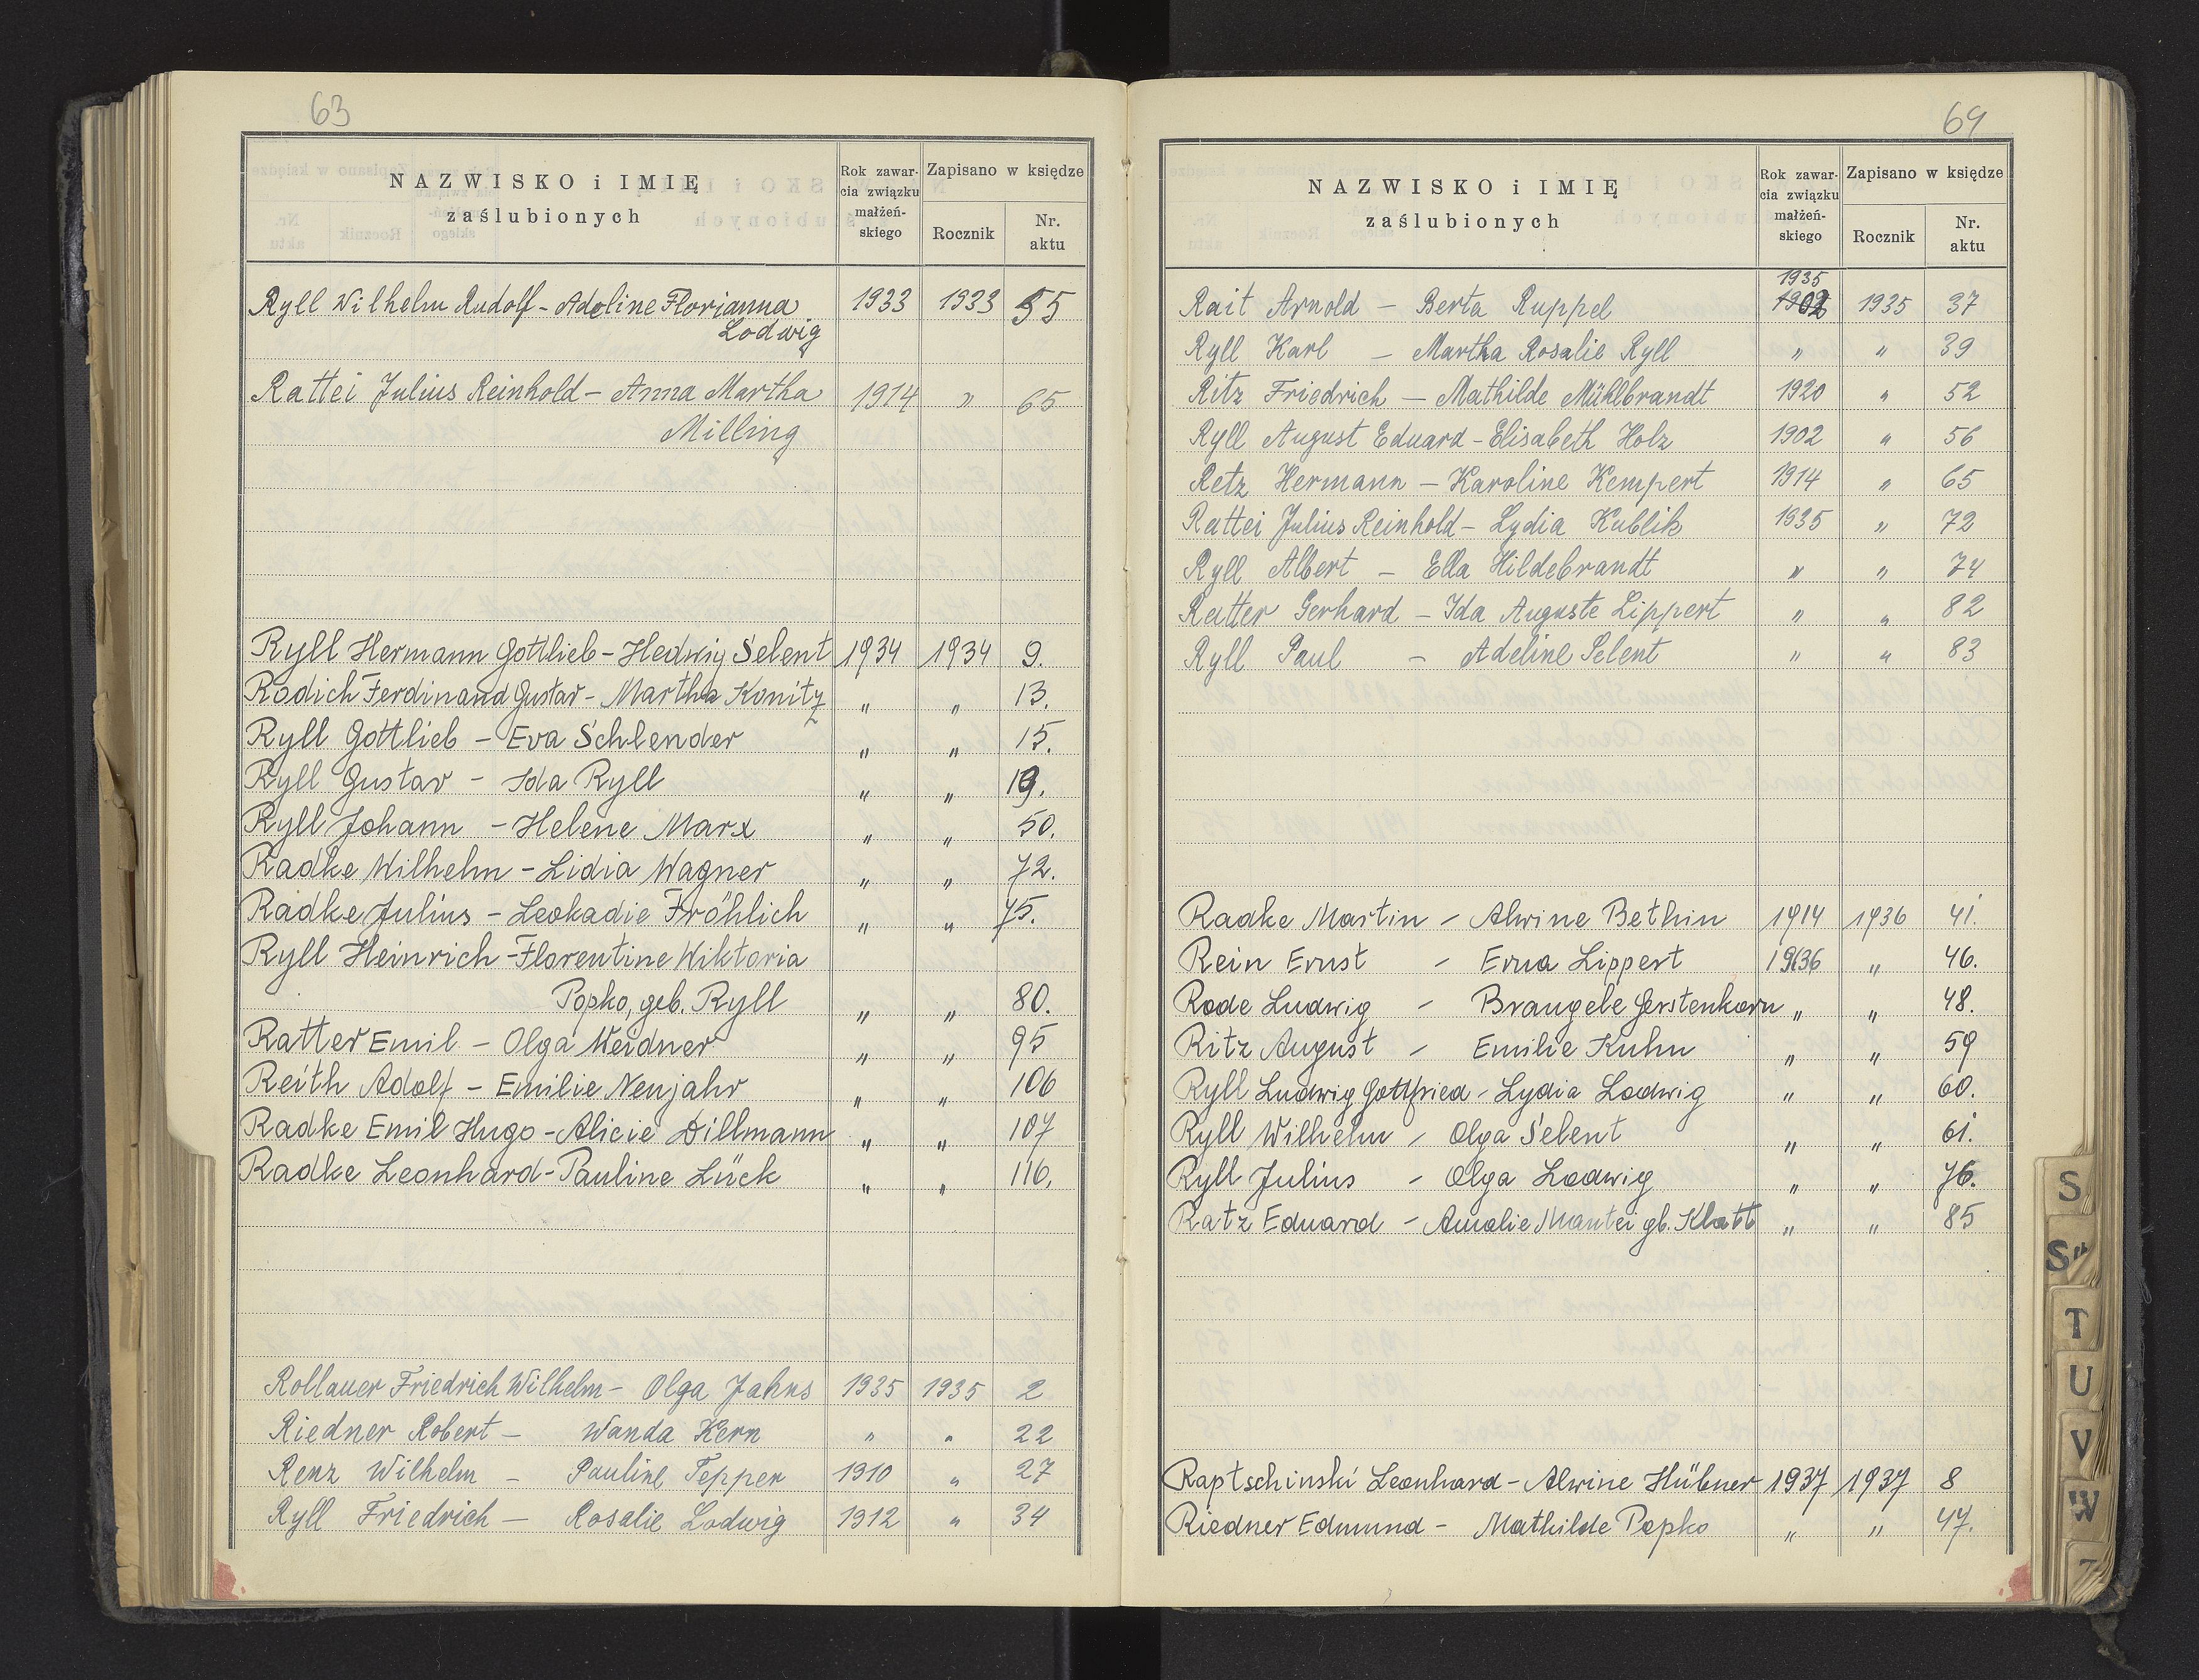 63
NAZWISKO i IMIĘ
zaślubionych
Rok zawar-
cia związku
małżeń-
skiego
Zapisano w księdze
Rocznik
Nr.
aktu
Ryll Wilhelm Rudolf - Adeline Florianna 1933 1933 55
Lodwig
Rattei Julius Reinhold - Anna Martha 1914 " 65
Milling
Ryll Hermann Gottlieb - Hedwig Selent 1934 1934 9.
Rodich Ferdinand Gustav - Martha Konitz " " 13.
Ryll Gottlieb - Eva Schlender " " 15.
Ryll Gustav - Ida Ryll " " 19.
Ryll Johann - Helene Marx " " 50.
Radke Wilhelm - Lidia Wagner " " 72.
Radke Julius - Leokadie Fröhlich " " 75.
Ryll Heinrich - Florentine Wiktoria
Popko, geb. Ryll " " 80.
Ratter Emil - Olga Weidner " " 95
Reith Adolf - Emilie Neujahr " " 106
Radke Emil Hugo - Alicie Dillmann " " 107
Radke Leonhard - Pauline Lück " " 116.
Rollauer Friedrich Wilhelm - Olga Jahns 1935 1935 2
Riedner Robert - Wanda Kern " " 22
Renz Wilhelm - Pauline Tepper 1910 " 27
Ryll Friedrich - Rosalie Lodwig 1912 " 34
64
NAZWISKO i IMIĘ
zaślubionych
Rok zawar-
cia związku
małżeń-
skiego
Zapisano w księdze
Rocznik
Nr.
aktu
1935
Rait Arnold - Berta Ruppel 1902 1935 37
Ryll Karl - Martha Rosalie Ryll " " 39
Ritz Friedrich - Mathilde Mühlbrandt 1920 " 52
Ryll August Eduard - Elisabeth Holz 1902 " 56
Retz Hermann - Karoline Kempert 1914 " 65
Rattei Julius Reinhold - Lydia Kublik 1935 " 72
Ryll Albert - Ella Hildebrandt " " 74
Ratter Gerhard - Ida Auguste Lippert " " 82
Ryll Paul - Adeline Selent " " 83
Radke Martin - Alwine Bethin 1914 1936 41.
Rein Ernst - Erna Lippert 1936 " 46.
Rode Ludwig - Brangele Gerstenkorn " " 48.
Ritz August - Emilie Kuhn " " 59
Ryll Ludwig Gottfried - Lydia Lodwig " " 60.
Ryll Wilhelm - Olga Selent " " 61.
Ryll Julius - Olga Lodwig " " 76.
Ratz Eduard - Amalie Mantei gb. Klatt " " 85
Raptschinski Leonhard - Alwine Hübner 1937 1937 8
Riedner Edmund - Mathilde Popko " " 47.
S
S"
T
U
V
W
Z